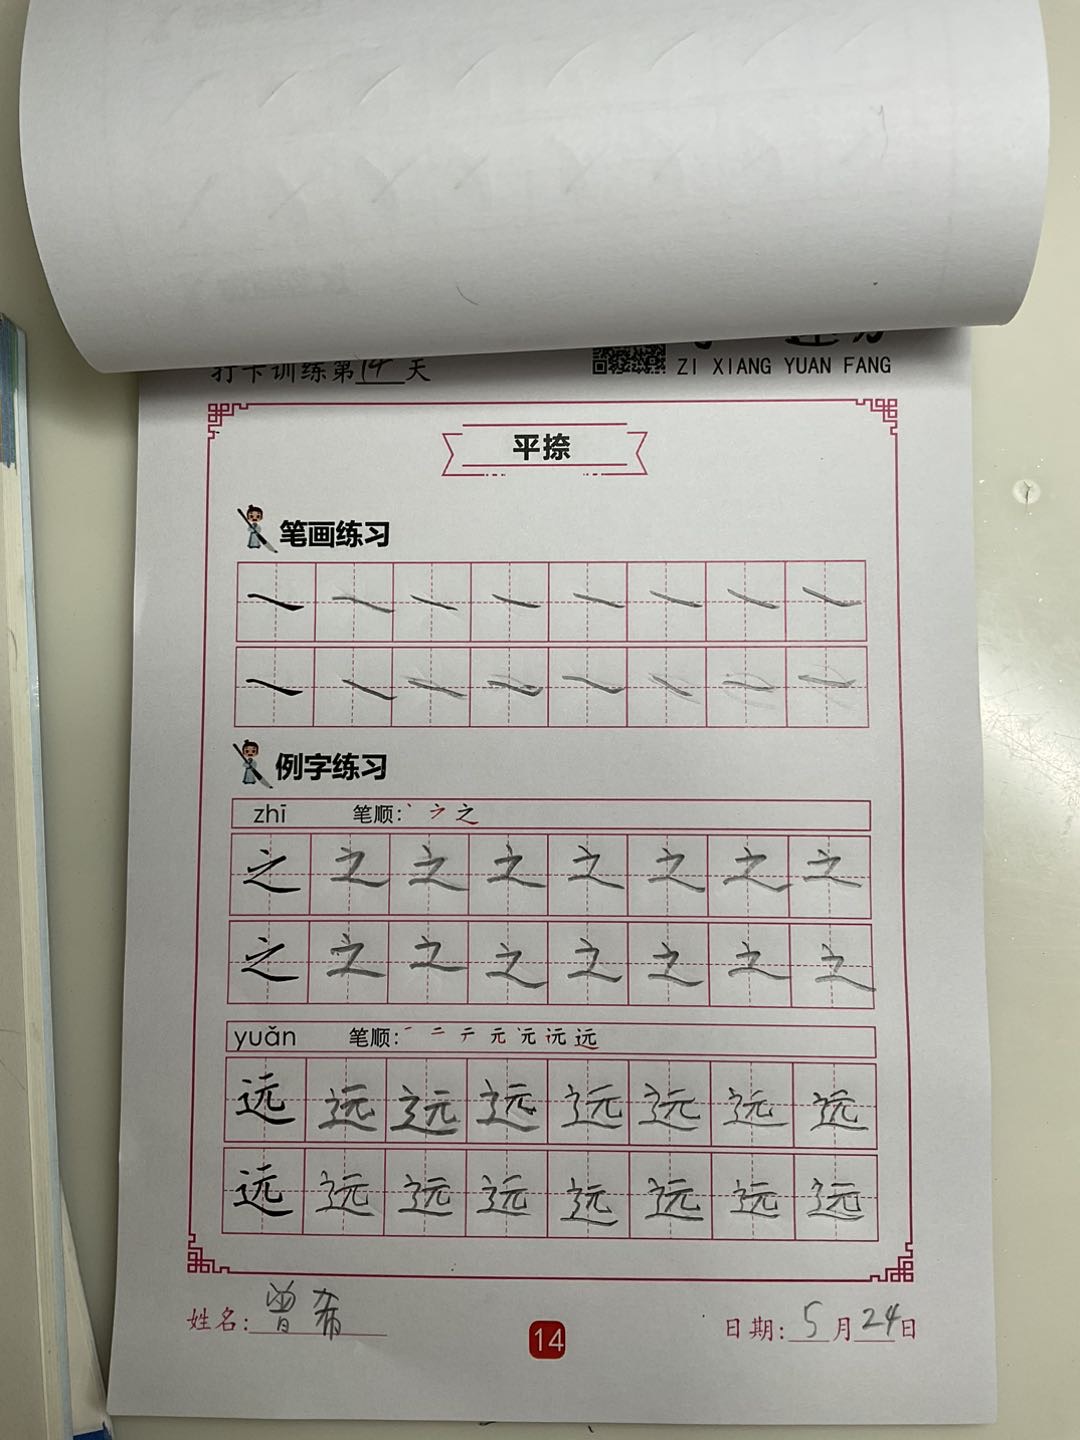 打卡训练第14天
ZI XIANG YUAN FANG
平捺
笔画练习
例字练习
zhī 笔顺: 丶 之
之 之 之 之 之 之 之 之
之 之 之 之 之 之 之 之
yuǎn 笔顺: 一 二 元 远
远 远 远 远 远 远 远 远
远 远 远 远 远 远 远 远
姓名: 曾希 14 日期: 5月24日